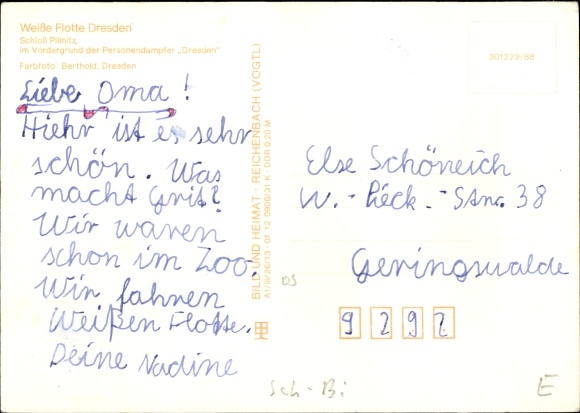 Weiße Flotte Dresden
Schloß Pillnitz,
im Vordergrund der Personendampfer „Dresden"
Farbfoto: Berthold, Dresden
Liebe Oma!
Hiehr ist es sehr
schön. Was
macht Grit?
Wir waren
schon im Zoo.
Wir fahren
Weißen Flotte.
Deine Nadine
BILD UND HEIMAT · REICHENBACH (VOGTL)
A1/B/26/13 · 01 12 0906/31 K · DDR 0,20 M
301229/88
Else Schöneich
W.-Pieck-Str. 38
Geringswalde
9292
DS
Sch-Bi
E